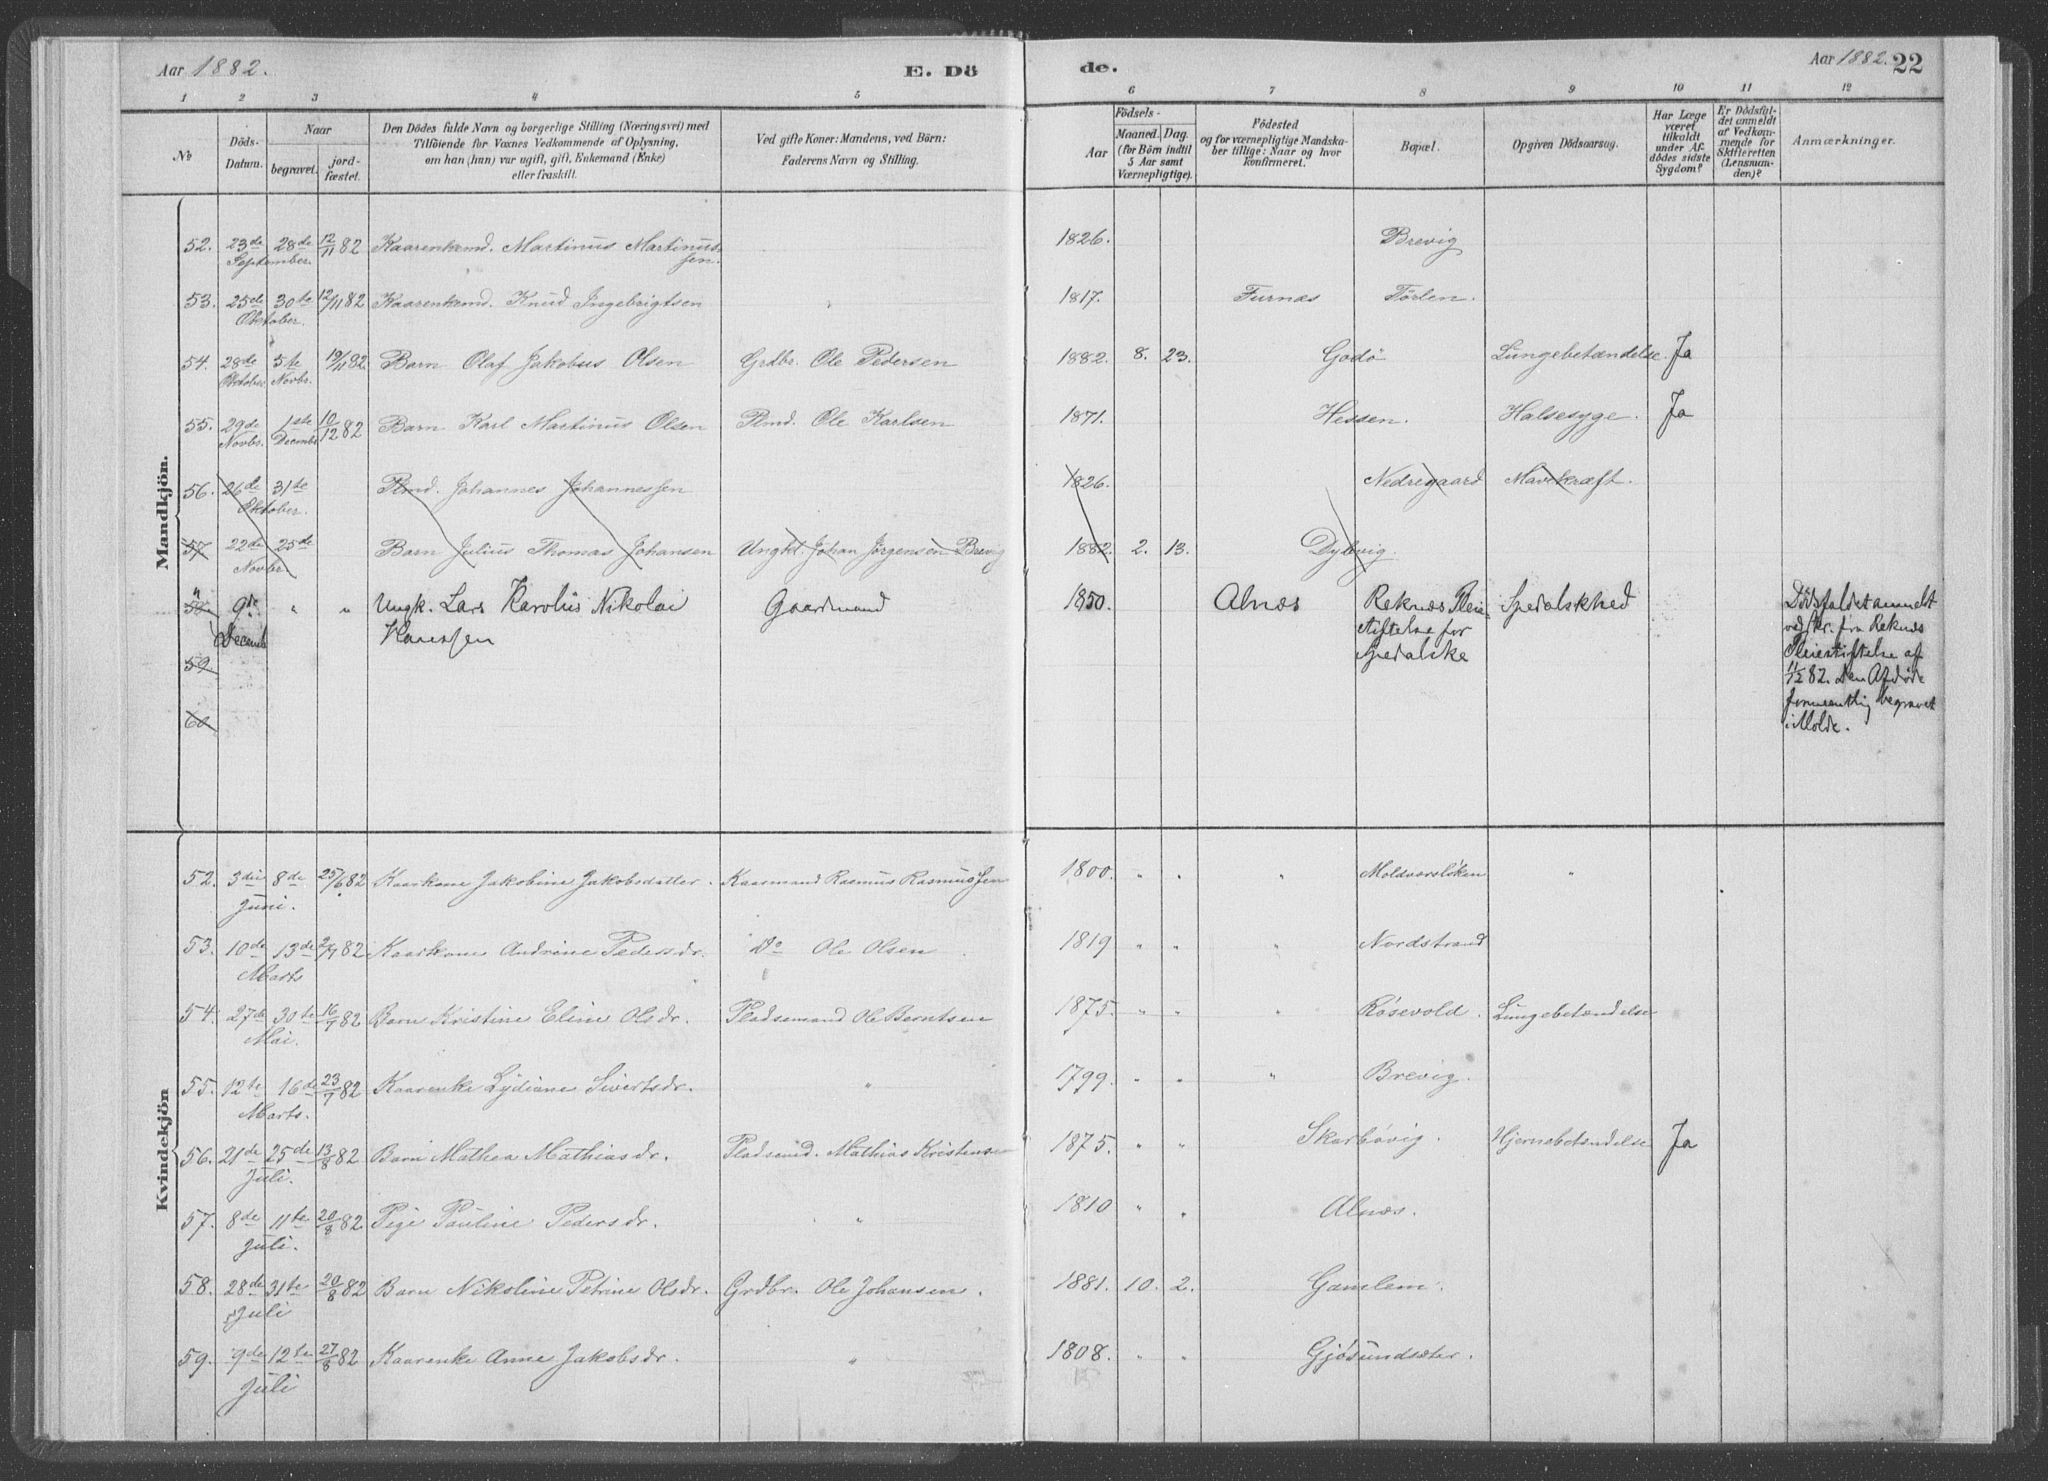 Aar 1882. E. Dö
1 2 3 4 5
№ Döds-Datum. Naar begravet. jord-fæstet. Den Dödes fulde Navn og borgerlige Stilling (Næringsvei) med Tilföiende for Voxnes Vedkommende af Oplysning, om han (hun) var ugift, gift, Enkemand (Enke) eller fraskilt. Ved gifte Koner: Mandens, ved Börn: Faderens Navn og Stilling.
de. Aar 1882. 22
6 7 8 9 10 11 12
Födsels- Aar Maaned. Dag. (for Börn indtil 5 Aar samt Værnepligtige). Födested og for værnepligtige Mandskaber tillige: Naar og hvor konfirmeret. Bopæl. Opgiven Dödsaarsag. Har Læge været tilkaldt under Afdödes sidste Sygdom? Er Dödsfaldet anmeldt af Vedkommende for Skifteretten (Lensmanden)? Anmærkninger.
Mandkjön.
52. 23de September 28de 12/11 82 Kaarenkemd. Martinus Martinussen. 1826. Brevig
53. 25de Oktober 30te 12/11 82 Kaarenkemd. Knud Ingebrigtsen 1817. Furnæs Törlen.
54. 28de Oktober 5te Novbr. 19/11 82. Barn Olaf Jakobus Olsen Grdbr. Ole Pedersen 1882. 8. 23. Godö Lungebetændelse. Ja
55. 29de Novbr. 1ste Decembr 10/12 82 Barn Karl Martinus Olsen Plmd. Ole Karlsen 1871. Hessen. Halsesyge. Ja
56. 26de Oktober 31te Plmd. Johannes Johannessen 1826. Nedregaard Mavekræft.
57 22de Novbr 25de Barn Julius Thomas Johansen Ungkl. Johan Jörgensen Brevig 1882. 2. 13. Dybvig.
58. 9de Decemb " " Ungk. Lars Karolus Nikolai Hanssen Gaardmand 1850. Alnæs Reknæs Pleiestiftelse for Spedalske Spedalskhed Dödsfaldet anmeldt ved skr. fra Reknæs Pleiestiftelse af 11/12 82. Den Afdöde formentlig begravet i Molde.
59.
60
Kvindekjön
52. 3die Juni. 8de 25/6 82 Kaarkone Jakobine Jakobsdatter. Kaarmand Rasmus Rasmussen 1800. " " " Moldværsløken "
53. 10de Marts 13de 2/7 82 Kaarkone Andrine Pedersdr. Do Ole Olsen 1819 " " " Nordstrand
54. 27de Mai. 30te 16/7 82 Barn Kristine Eline Olsdr. Pladsemand Ole Berntsen 1875. " " " Rösevold. Lungebetændelse
55. 12te Marts. 16de 23/7 82 Kaarenke Lydiane Sivertsdr. " 1799. " " " Brevig.
56. 21de Juli. 25de 13/8 82 Barn Mathea Mathiasdr. Pladsemd. Mathias Kristensen 1875. " " Skarbövig. Hjernebetændelse Ja
57. 8de Juli. 11te 20/8 82 Pige Pauline Pedersdr. " 1810 " " Alnæs.
58. 28de Juli 31te 20/8 82 Barn Nikoline Petrine Olsdr. Grdbr. Ole Johansen. 1881. 10. 2. Gamlem.
59. 9de Juli 12te 27/8 82 Kaarenke Anne Jakobsdr. " 1808. " " Gjösundsæter.